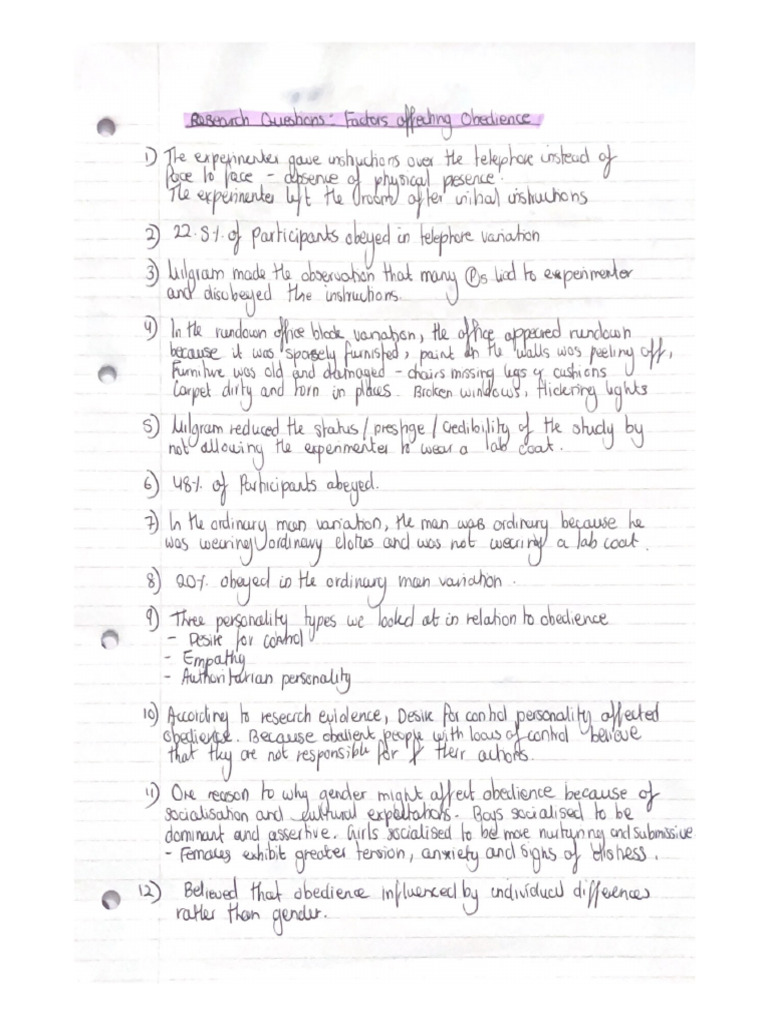 Research Questions: Factors affecting Obedience
1) The experimenter gave instructions over the telephone instead of
face to face - absence of physical presence.
The experimenter left the room after initial instructions
2) 22.5% of Participants obeyed in telephone variation
3) Milgram made the observation that many Ps lied to experimenter
and disobeyed the instructions.
4) In the rundown office block variation, the office appeared rundown
because it was sparsely furnished, paint on the walls was peeling off,
Furniture was old and damaged - chairs missing legs & cushions
Carpet dirty and torn in places. Broken windows, flickering lights
5) Milgram reduced the status/prestige/credibility of the study by
not allowing the experimenter to wear a lab coat.
6) 48% of Participants obeyed.
7) In the ordinary man variation, the man was ordinary because he
was wearing ordinary clothes and was not wearing a lab coat.
8) 20% obeyed in the ordinary man variation.
9) Three personality types we looked at in relation to obedience
- Desire for control
- Empathy
- Authoritarian personality
10) According to research evidence, Desire for control personality affected
obedience. Because obedient people with locus of control believe
that they are not responsible for their actions.
11) One reason to why gender might affect obedience because of
socialisation and cultural expectations. Boys socialised to be
dominant and assertive. Girls socialised to be more nurturing and submissive
- Females exhibit greater tension, anxiety and signs of distress.
12) Believed that obedience influenced by individual differences
rather than gender.